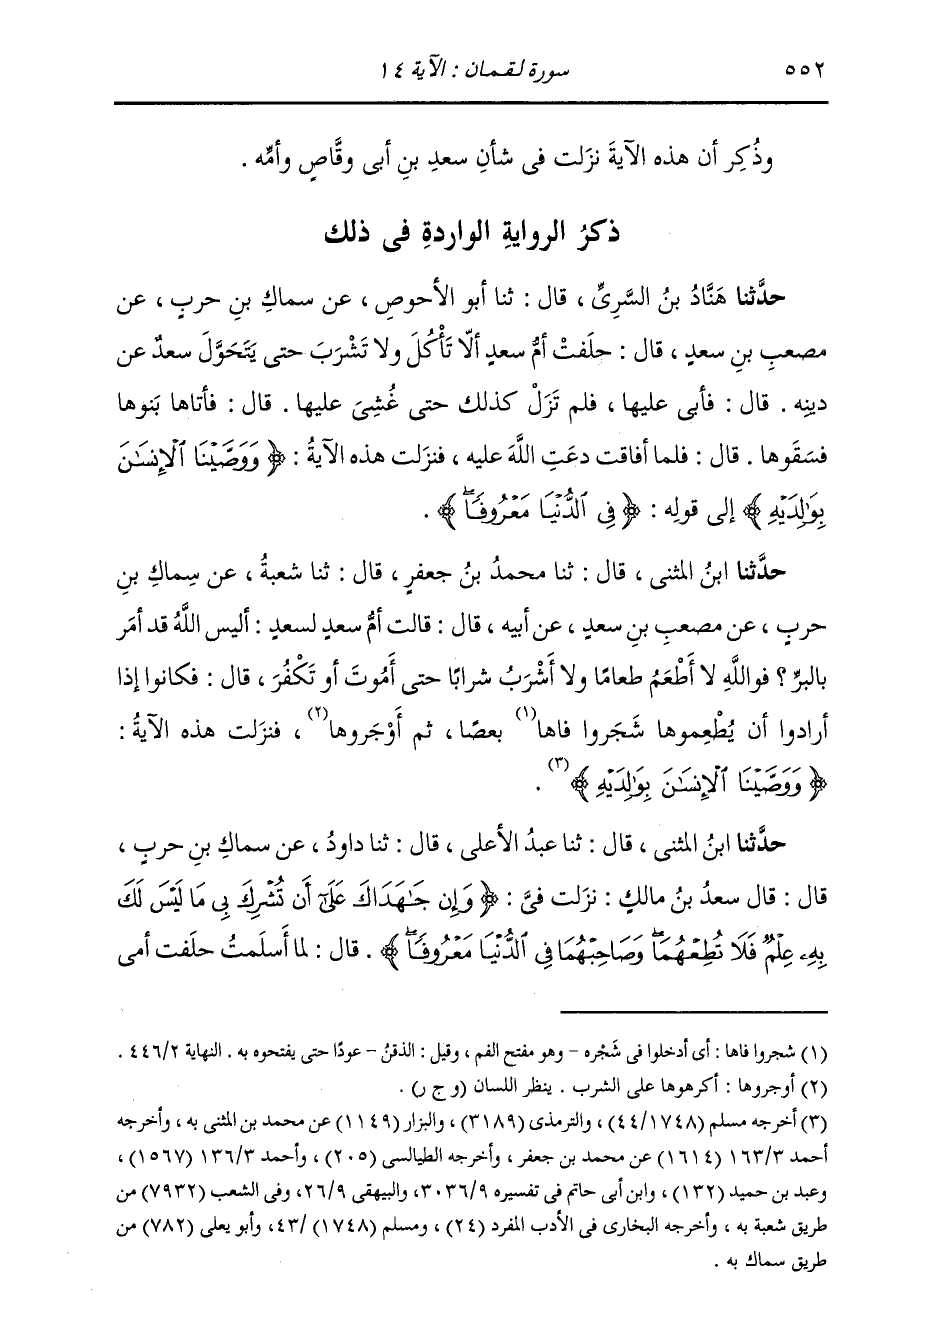 ٥٥٢ سورة لقمان : الآية ١٤
وذُكِر أن هذه الآيةَ نزَلت فى شأنِ سعدِ بنِ أبى وقَّاصٍ وأمِّه .
ذكرُ الروايةِ الواردةِ فى ذلك
حدَّثنا هَنَّادُ بنُ السَّرِىِّ ، قال : ثنا أبو الأحوصِ ، عن سماكِ بنِ حربٍ ، عن
مصعبِ بنِ سعدٍ ، قال : حلَفتْ أمُّ سعدٍ ألّا تَأْكُلَ ولا تَشْرَبَ حتى يَتَحَوَّلَ سعدٌ عن
دينِه . قال : فأبى عليها ، فلم تَزَلْ كذلك حتى غُشِىَ عليها . قال : فأتاها بَنوها
فسَقَوها . قال : فلما أفاقت دعَتِ اللَّهَ عليه ، فنزَلت هذه الآيةُ : ﴿ وَوَصَّيْنَا ٱلْإِنسَٰنَ
بِوَٰلِدَيْهِ ﴾ إلى قولِه : ﴿ فِى ٱلدُّنْيَا مَعْرُوفًاۖ ﴾ .
حدَّثنا ابنُ المثنى ، قال : ثنا محمدُ بنُ جعفرٍ ، قال : ثنا شعبةُ ، عن سِماكِ بنِ
حربٍ ، عن مصعبِ بنِ سعدٍ ، عن أبيه ، قال : قالت أمُّ سعدٍ لسعدٍ : أليس اللَّهُ قد أمَر
بالبرِّ ؟ فواللَّهِ لا أَطْعَمُ طعامًا ولا أَشْرَبُ شرابًا حتى أَمُوتَ أو تَكْفُرَ ، قال : فكانوا إذا
أرادوا أن يُطْعِموها شَجَروا فاها(١) بعصًا ، ثم أَوْجَروها(٢) ، فنزَلت هذه الآيةُ :
﴿ وَوَصَّيْنَا ٱلْإِنسَٰنَ بِوَٰلِدَيْهِ ﴾(٣) .
حدَّثنا ابنُ المثنى ، قال : ثنا عبدُ الأعلى ، قال : ثنا داودُ ، عن سماكِ بنِ حربٍ ،
قال : قال سعدُ بنُ مالكٍ : نزَلت فىَّ : ﴿ وَإِن جَٰهَدَاكَ عَلَىٰٓ أَن تُشْرِكَ بِى مَا لَيْسَ لَكَ
بِهِۦ عِلْمٌ فَلَا تُطِعْهُمَاۖ وَصَاحِبْهُمَا فِى ٱلدُّنْيَا مَعْرُوفًاۖ ﴾ . قال : لما أَسلَمتُ حلَفت أمى
(١) شجروا فاها : أى أدخلوا فى شَجْره – وهو مفتح الفم ، وقيل : الذقنُ – عودًا حتى يفتحوه به . النهاية ٢/ ٤٤٦ .
(٢) أوجروها : أكرهوها على الشرب . ينظر اللسان (و ج ر) .
(٣) أخرجه مسلم (٤٤/١٧٤٨) ، والترمذى (٣١٨٩) ، والبزار (١١٤٩) عن محمد بن المثنى به ، وأخرجه
أحمد ٣/ ١٦٣ (١٦١٤) عن محمد بن جعفر ، وأخرجه الطيالسى (٢٠٥) ، وأحمد ٣/ ١٣٦ (١٥٦٧) ،
وعبد بن حميد (١٣٢) ، وابن أبى حاتم فى تفسيره ٩/ ٣٠٣٦، والبيهقى ٩/ ٢٦، وفى الشعب (٧٩٣٢) من
طريق شعبة به ، وأخرجه البخارى فى الأدب المفرد (٢٤) ، ومسلم (١٧٤٨) /٤٣، وأبو يعلى (٧٨٢) من
طريق سماك به .